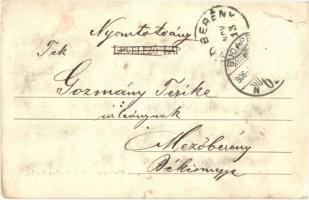 Nyomtatvány
LEVELEZŐ-LAP
Tek
Gozmány Terike
úrleánynak
Mezőberény
Békésmegye
BERÉNY
BUDAPEST
906